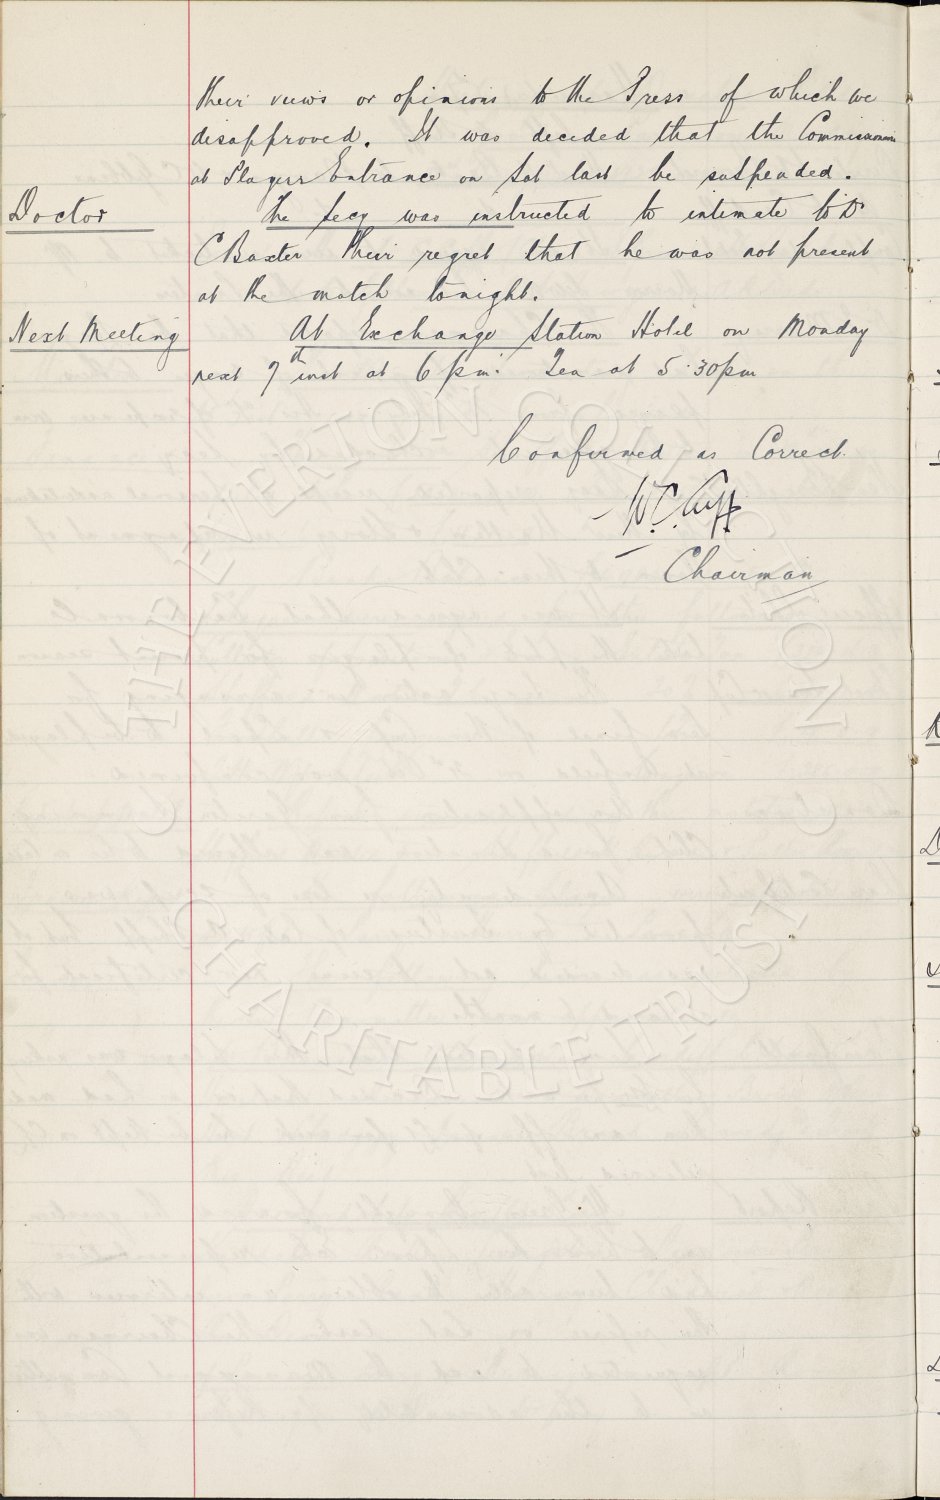 their views or opinions to the Press of which we
disapproved. It was decided that the Commissionaire
at Players Entrance on Sat last be suspended.
Doctor The Secy was instructed to intimate to Dr
C Baxter their regret that he was not present
at the match tonight.
Next Meeting At Exchange Station Hotel on Monday
next 7th inst at 6 pm. Tea at 5.30pm
Confirmed as Correct.
W.C. Cuff
Chairman
THE EVERTON COLLECTION
CHARITABLE TRUST